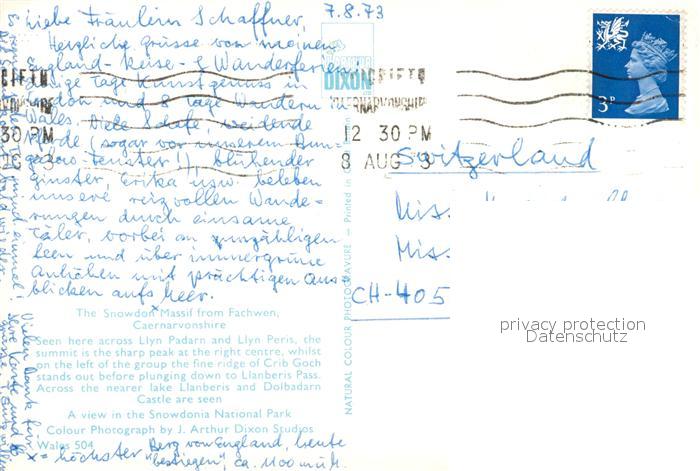 7.8.73
Liebe Fräulein Schaffner,
Herzliche Grüsse von meinen
England-Reise- & Wanderferien
einige Tage Kunstgenuss in
London und 8 Tage Wandern
Wales. Viele Schafe, weidende
Pferde (sogar vor unserem Bun-
galow-Fenster!), blühender
Ginster, Erika usw. beleben
unsere reizvollen Wande-
rungen durch einsame
Täler, vorbei an unzähligen
Seen und über immergrüne
Anhöhen mit prächtigen Aus-
blicken aufs Meer.
The Snowdon Massif from Fachwen,
Caernarvonshire
Seen here across Llyn Padarn and Llyn Peris, the
summit is the sharp peak at the right centre, whilst
on the left of the group the fine ridge of Crib Goch
stands out before plunging down to Llanberis Pass.
Across the nearer lake Llanberis and Dolbadarn
Castle are seen
A view in the Snowdonia National Park
Colour Photograph by J. Arthur Dixon Studios
Wales 504
x = höchster Berg von England, heute
"bestiegen", ca. 1100 m ü. M.
Vielen Dank für
Ihre Karte und
NATURAL COLOUR PHOTOGRAVURE — Printed in
DIXON
CAERNARVONSHIRE
12 30 PM
8 AUG
30 PM
3P
Switzerland
Miss.
Miss.
CH-405
privacy protection
Datenschutz